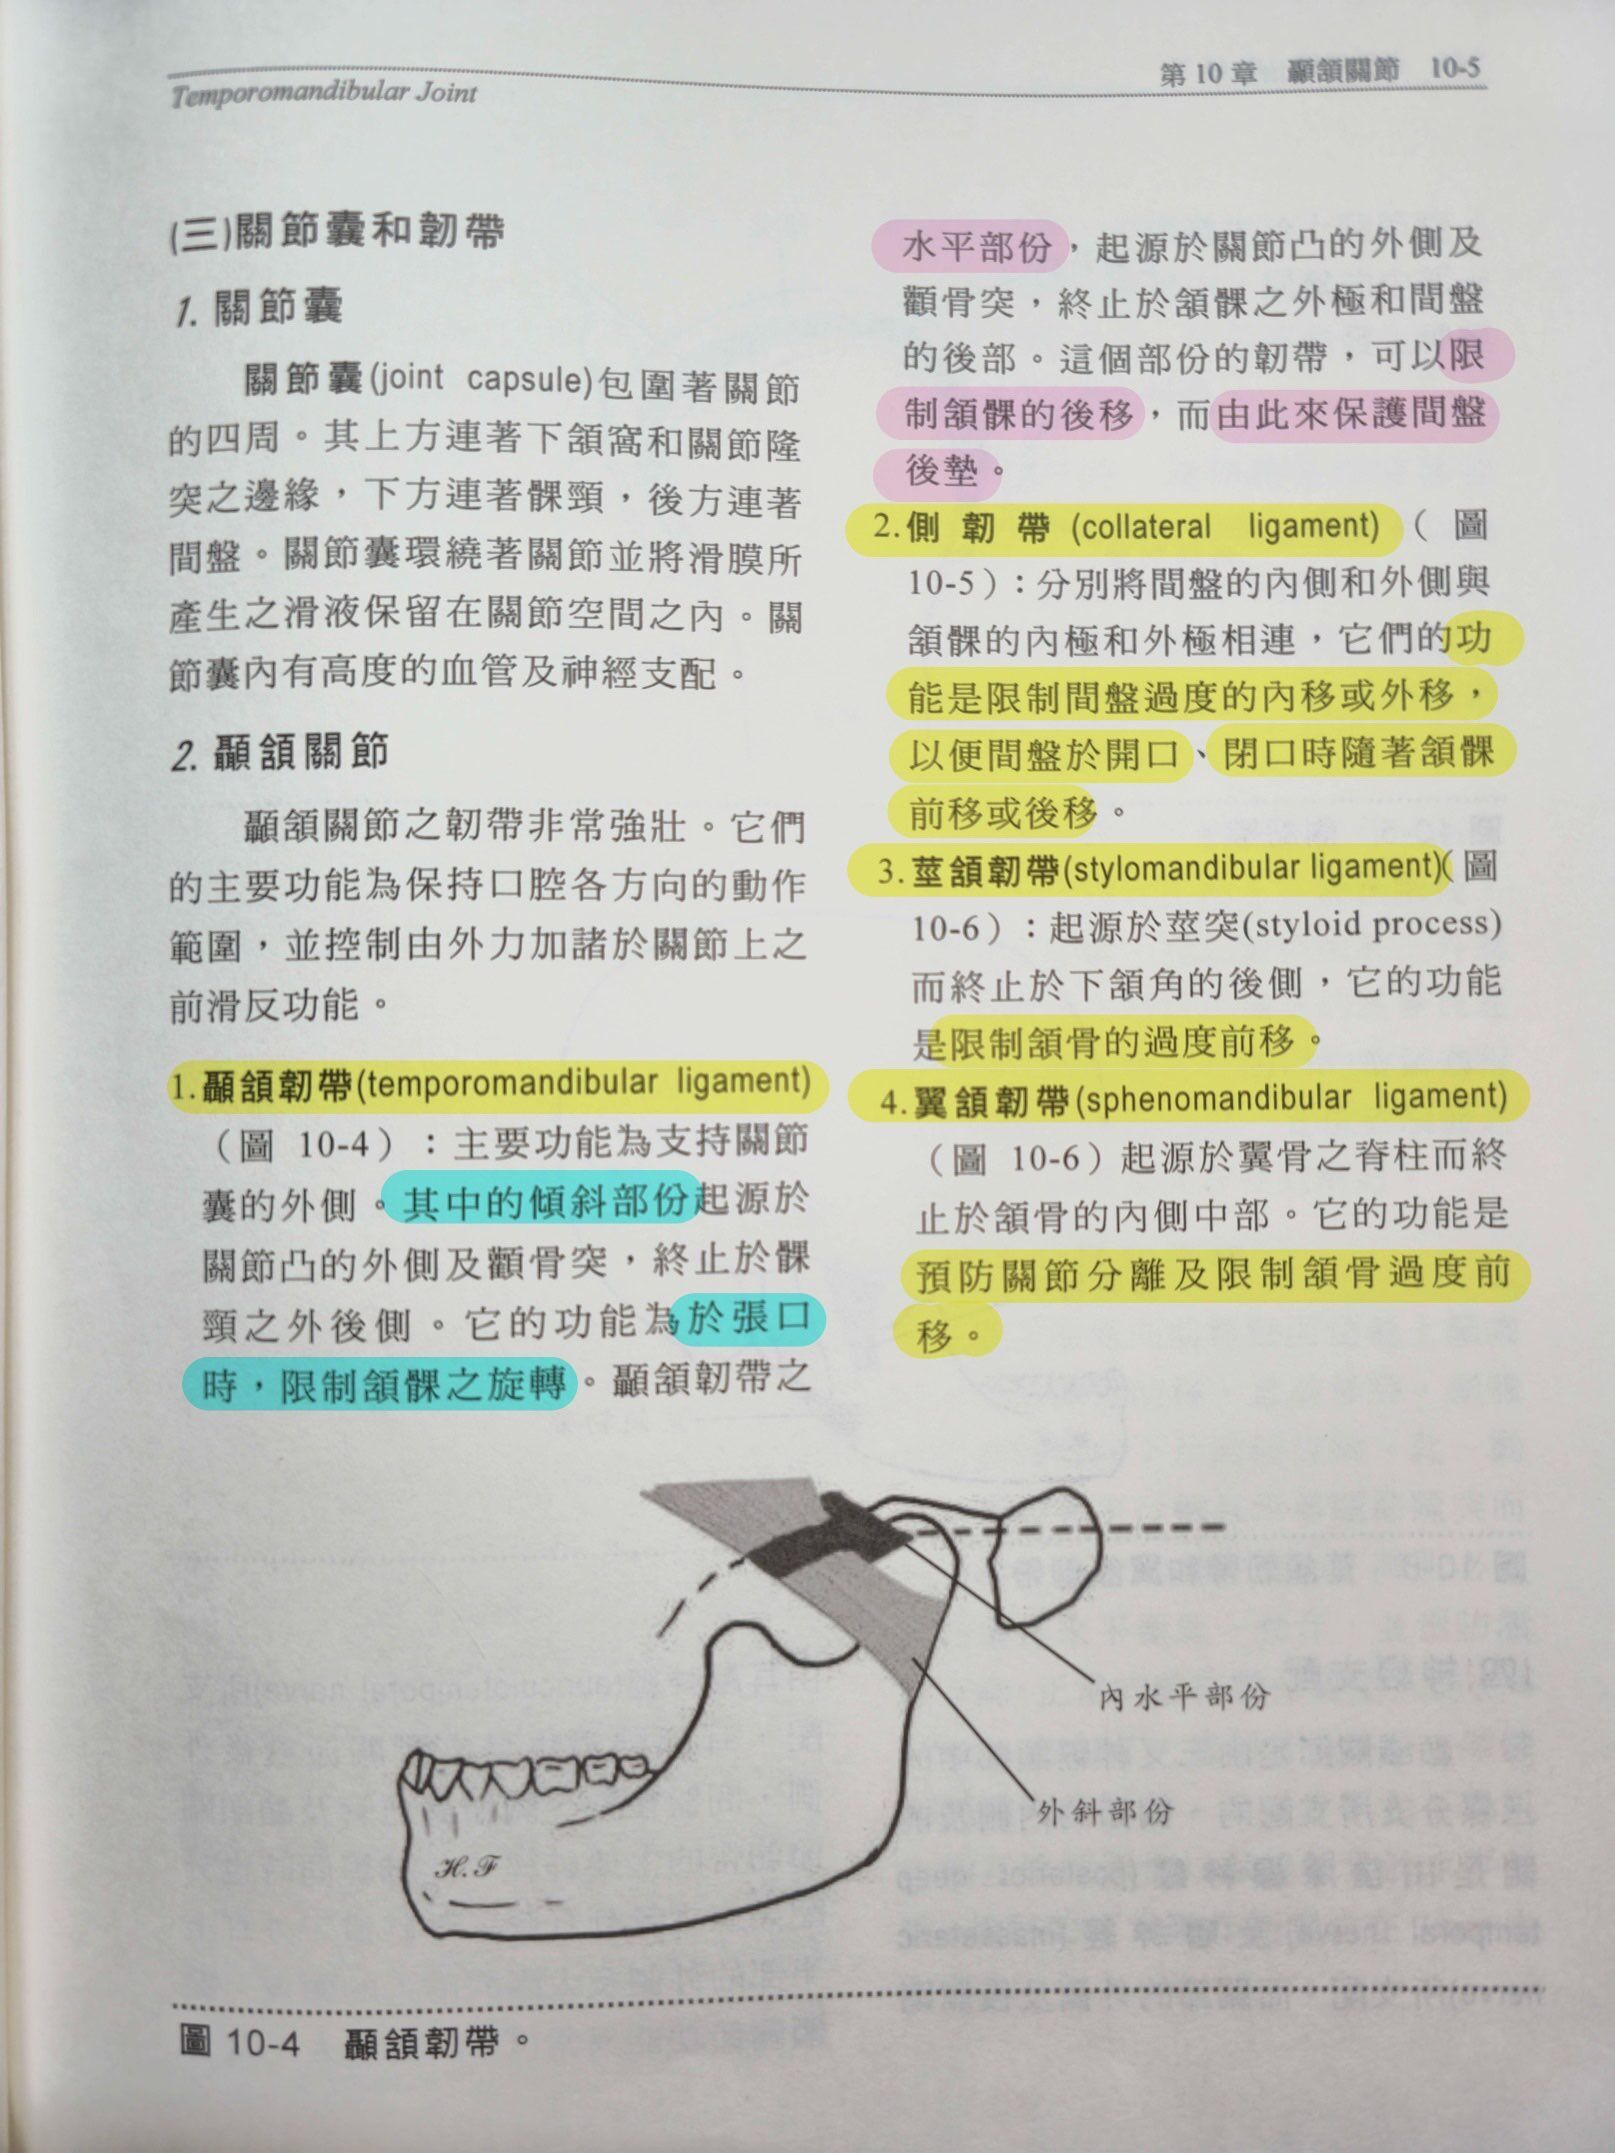 Temporomandibular Joint
第 10 章　顳頜關節　10-5
(三)關節囊和韌帶
1. 關節囊
關節囊(joint capsule)包圍著關節
的四周。其上方連著下頜窩和關節隆
突之邊緣，下方連著髁頸，後方連著
間盤。關節囊環繞著關節並將滑膜所
產生之滑液保留在關節空間之內。關
節囊內有高度的血管及神經支配。
2. 顳頜關節
顳頜關節之韌帶非常強壯。它們
的主要功能為保持口腔各方向的動作
範圍，並控制由外力加諸於關節上之
前滑反功能。
1.顳頜韌帶(temporomandibular ligament)
（圖 10-4）：主要功能為支持關節
囊的外側。其中的傾斜部份起源於
關節凸的外側及顴骨突，終止於髁
頸之外後側。它的功能為於張口
時，限制頜髁之旋轉。顳頜韌帶之
水平部份，起源於關節凸的外側及
顴骨突，終止於頜髁之外極和間盤
的後部。這個部份的韌帶，可以限
制頜髁的後移，而由此來保護間盤
後墊。
2.側韌帶(collateral ligament)（圖
10-5）：分別將間盤的內側和外側與
頜髁的內極和外極相連，它們的功
能是限制間盤過度的內移或外移，
以便間盤於開口、閉口時隨著頜髁
前移或後移。
3.莖頜韌帶(stylomandibular ligament)（圖
10-6）：起源於莖突(styloid process)
而終止於下頜角的後側，它的功能
是限制頜骨的過度前移。
4.翼頜韌帶(sphenomandibular ligament)
（圖 10-6）起源於翼骨之脊柱而終
止於頜骨的內側中部。它的功能是
預防關節分離及限制頜骨過度前
移。
內水平部份
外斜部份
H. F
圖 10-4　顳頜韌帶。